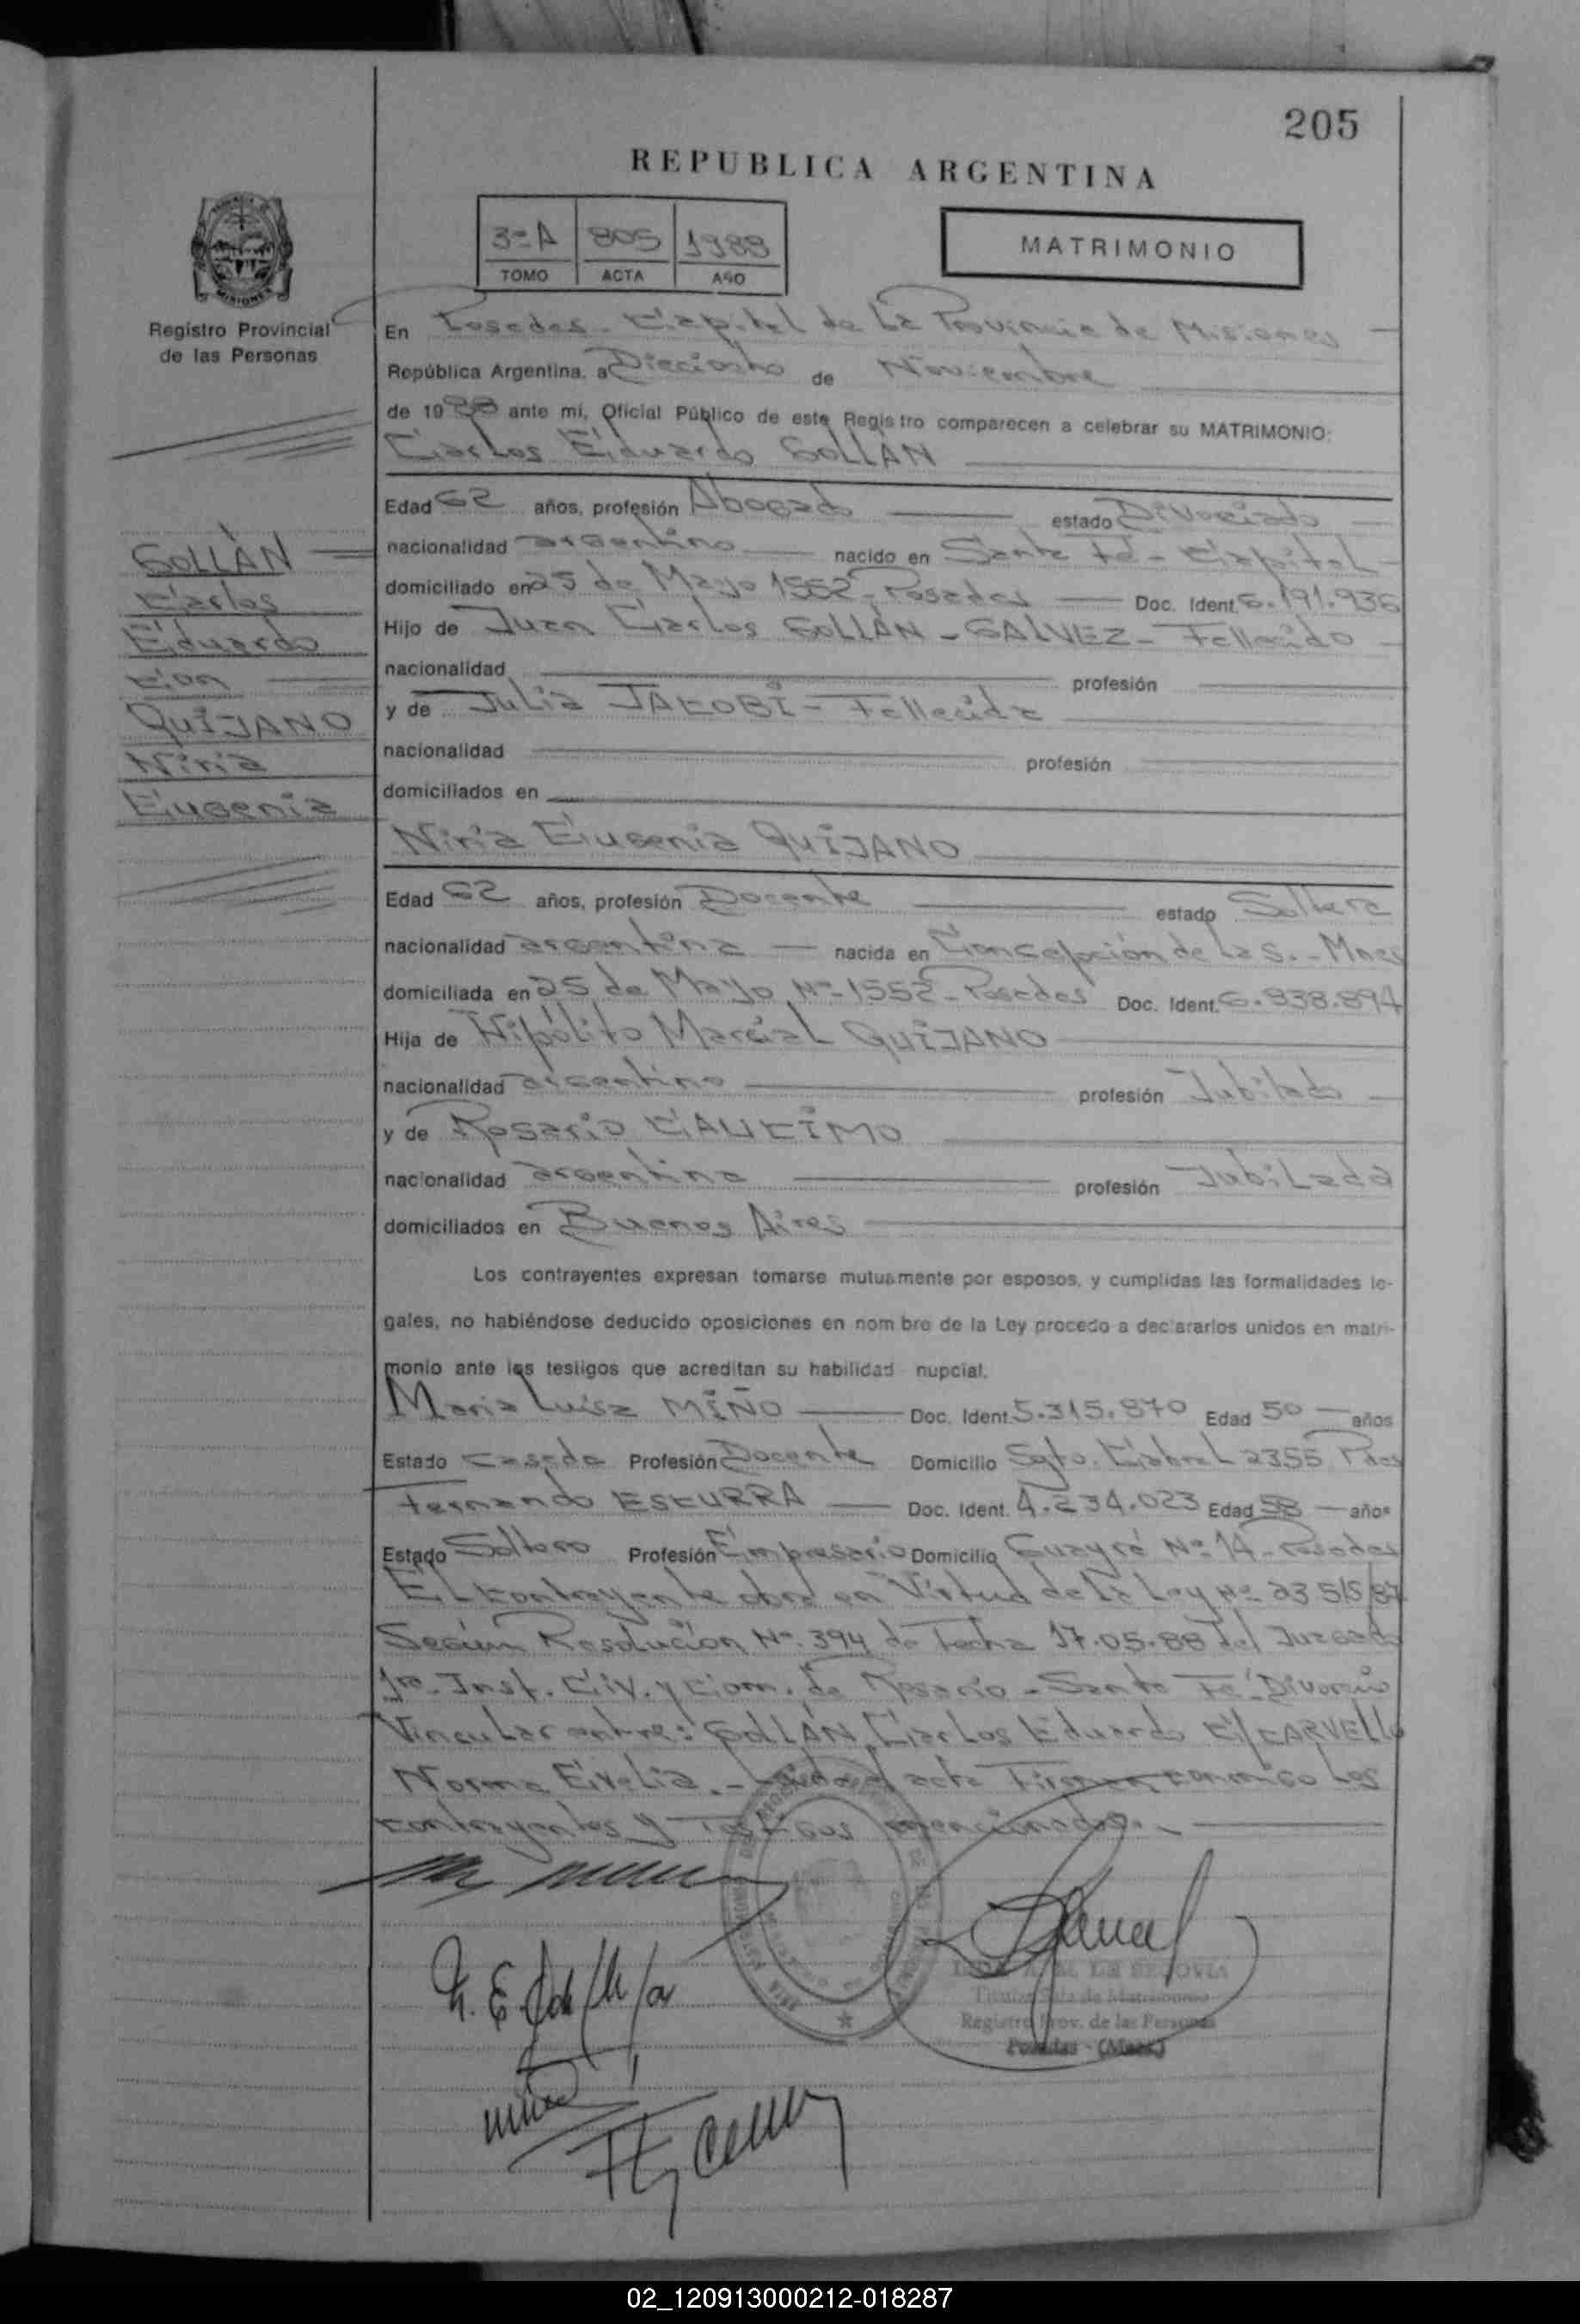 205
REPUBLICA ARGENTINA
3ºA 805 1988
TOMO ACTA AÑO
MATRIMONIO
MISIONES
Registro Provincial
de las Personas
En Posadas - Capital de La Provincia de Misiones
República Argentina, a Dieciocho de Noviembre
de 1988 ante mí, Oficial Público de este Registro comparecen a celebrar su MATRIMONIO:
Carlos Eduardo GOLLÁN
Edad 62 años, profesión Abogado estado Divorciado
nacionalidad argentino nacido en Santa Fé - Capital
domiciliado en 25 de Mayo 1552 - Posadas Doc. Ident. 6.191.936
Hijo de Juan Carlos GOLLÁN - GALVEZ - Fallecido
nacionalidad profesión
y de Julia JACOBI - Fallecida
nacionalidad profesión
domiciliados en
GOLLÁN
Carlos
Eduardo
con
QUIJANO
Niria
Eugenia
Niria Eugenia QUIJANO
Edad 62 años, profesión Docente estado Soltera
nacionalidad argentina nacida en Concepción de La S. - Mnes
domiciliada en 25 de Mayo Nº 1552 - Posadas Doc. Ident. 6.838.894
Hija de Hipólito Marcial QUIJANO
nacionalidad argentino profesión Jubilado
y de Rosario
nacionalidad argentina profesión Jubilada
domiciliados en Buenos Aires
Los contrayentes expresan tomarse mutuamente por esposos, y cumplidas las formalidades le-
gales, no habiéndose deducido oposiciones en nom bre de la Ley procedo a declararlos unidos en matri-
monio ante los testigos que acreditan su habilidad nupcial.
Maria Luisa MIÑO Doc. Ident. 5.315.870 Edad 50 años
Estado Casada Profesión Docente Domicilio Sgto. Cabral 2355 Pdas
Fernando ESCURRA Doc. Ident. 4.234.023 Edad 58 años
Estado Soltero Profesión Empresario Domicilio Guayrá Nº 14 - Posadas
El contrayente obra en Virtud de La Ley Nº 23515/87
Según Resolución Nº 394 de Fecha 17.05.88 del Juzgado
1ra. Inst. Civ. y Com. de Rosario - Santa Fé. Divorcio
Vincular entre: GOLLÁN, Carlos Eduardo C/ CARVELLO
Norma Evelia. - Leída el acta Firman conmigo Los
contrayentes y Testigos mencionados. -
DE SEGOVIA
Titular Sala de Matrimonio
Registro Prov. de las Personas
Posadas - (Mnes.)
02_120913000212-018287